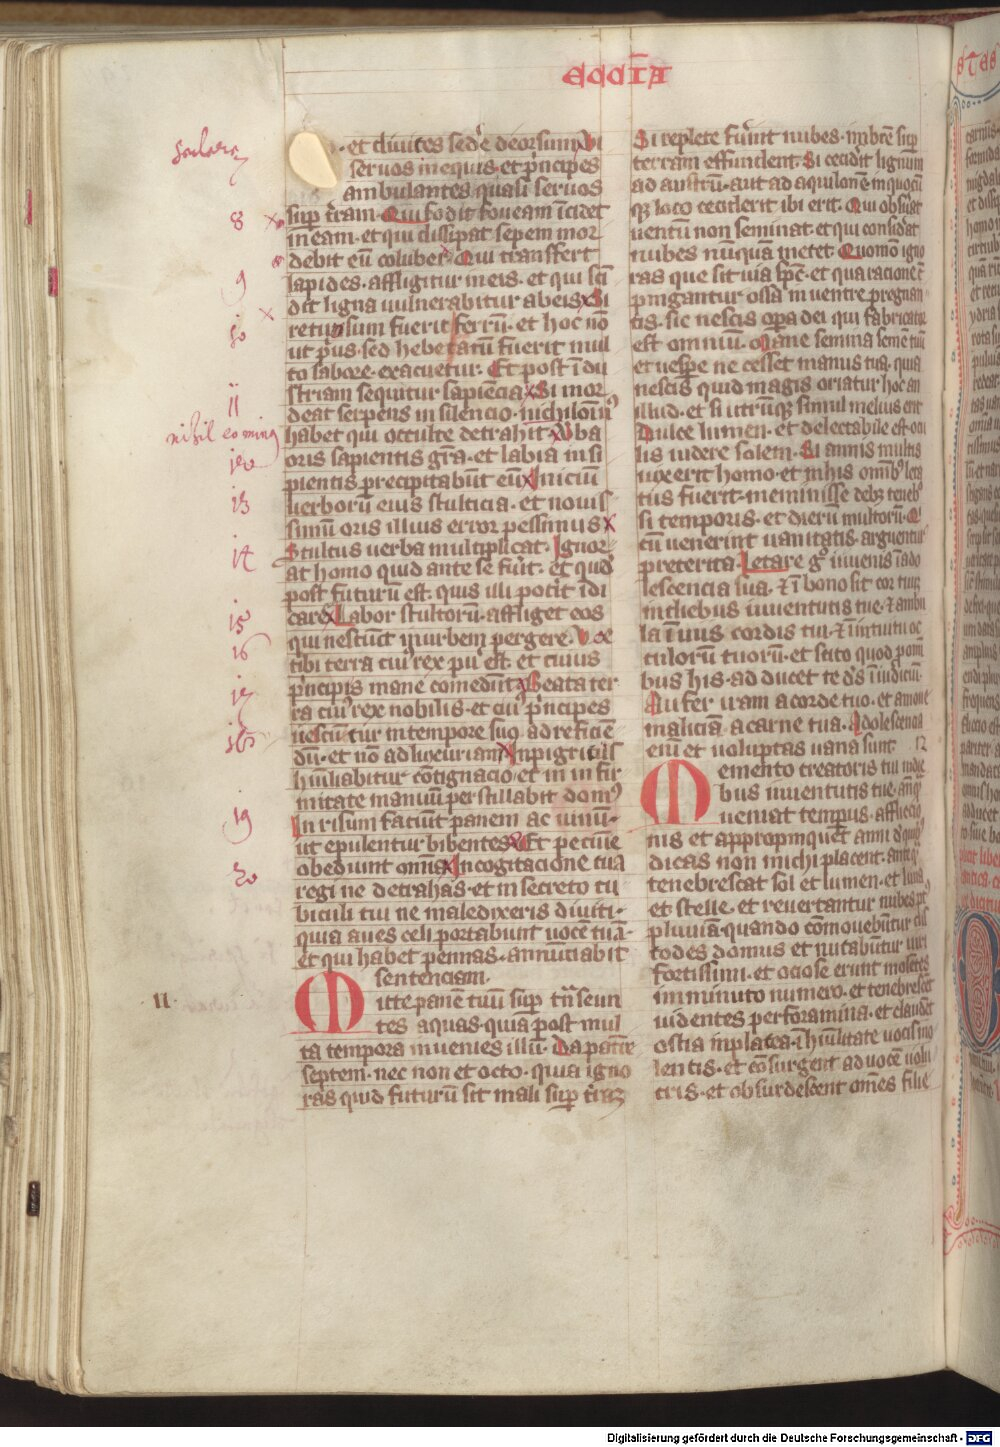 ECCĪA
· et divites sedꝰe deorsum Vi
servos in equis · et pͥncipes
ambulantes quasi servos
suꝑ t̄ram · Qui fodit foveam īcidet
in eam · et qui dissipat sepem mor
debit eū coluber · Qui transffert
lapides · affligitur in eis · et qui scī
dit ligna vulnerabitur ab eis Si
retunsum fuerit ferrū · et hoc nō
ut pͥus · sed hebetatū fuerit mul
to labore · exacuetur · Et post īdu
striam sequitur sapiēcia Si mor
deat serpens in silencio · nichilomīꝰ
habet qui occulte detrahit Vba
oris sapientis gr̄a · et labia insi
pientis precipitabūt eū Iniciū
verborū eius stulticia · et noviſ
simū oris illius error pessimus
Stultus verba multiplicat · Ignor
at homo quid ante se fūit · et quid
post futurū est · quis illi poťit īdi
care Labor stultorū · affliget eos
qui nesciūt in urbem pergere · Ve
tibi terra cuiꝰ rex puꝰ est · et cuius
pͥncipis mane comedūt Beata ter
ra cuiꝰ rex nobilis · et cuiꝰ pͥncipes
vescūtur in tempore suo ad reficiē
dū · et nō ad luxuriam In pigriciis
hūiliabitur cōtignacio · et in infir
mitate manuū perstillabit domꝰ
In risum faciūt panem ac vinū ·
ut epulentur bibentes Et pecūie
obediunt omīa In cogitacione tua
regi ne detrahas · et in secreto cu
biculi tui ne maledixeris diviti ·
quia aves celi portabunt vocē tuā ·
et qui habet pennas · annūciabit
sentenciam ·
Mitte panē tuū suꝑ trāseun
tes aquas · quia post mul
ta tempora invenies illū · Da partē
septem · nec non et octo · quia igno
ras quid futurū sit mali suꝑ t̄rā
Si replete fuꝰint nubes · imbrē suꝑ
terram effundent · Si cecidit lignum
ad austrū · aut ad aquilonē in quocū
qꝫ loco ceciderit ibi erit · Qui obsꝰvat
ventū non seminat · et qui consid̕at
nubes nūquā metet · Quomō igno
ras que sit via spc̄ · et qua racione
ꝯpingantur ossa in ventre pregnan
tis · sic nescis oꝑa dei qui fabricator
est omniū · Mane semina semē tuū
et vesꝑe ne cesset manus tua · quia
nescis quid magis oriatur hoc an
illud · et si utrūqꝫ simul melius erit
Dulce lumen · et delectabile est ocu
lis videre solem · Si annis multis
vixerit homo · et in his omībꝰ leta
tus fuerit · meminisse debet tenebͦ
si temporis · et dierū multorū · Q
cū venerint vanitatis · arguentur
preterita · Letare gͦ iuvenis ī ado
lescencia tua · et ī bono sit cor tuū
in diebus iuventutis tue · et ambu
la ī viis cordis tui · et ī intuitu oc
culorū tuorū · et scito quod pro om̄
bus his · ad ducet te dꝰs ī iudiciū ·
Aufer iram a corde tuo · et amove
maliciā a carne tua · Adolescencia
enī et voluptas vana sunt · 12
Memento creatoris tui in die
bus iuventutis tue · anteqͣ
veniat tempus · afflictio
nis et appropinquēt anni de qͥbꝰ
dicas non michi placent · anteqͣ
tenebrescat sol et lumen · et luna
et stelle · et revertantur nubes pꝰ
pluviā · quando cōmovebūtur cus
todes domus et nutabūtur viri
fortissimi · et ociose erunt molētes
in minuto numero · et tenebrescēt
videntes per foramina · et claudēt
ostia in platea · ī hūilitate vocis mo
lentis · et cōsurgent ad vocē volu
cris · et obsurdescent om̄es filie
8
9
10
11
nihil eo minꝰ
12
13
14
15
16
17
18
19
20
11 ·
Digitalisierung gefördert durch die Deutsche Forschungsgemeinschaft - DFG